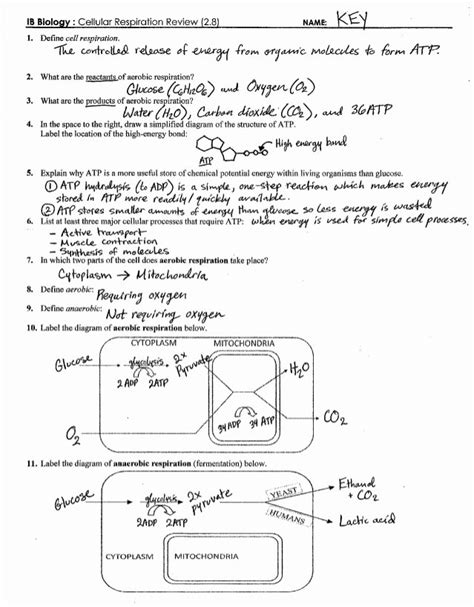 IB Biology : Cellular Respiration Review (2.8) NAME: KEY
1. Define cell respiration.
The controlled release of energy from organic molecules to form ATP.
2. What are the reactants of aerobic respiration?
Glucose (C6H12O6) and Oxygen (O2)
3. What are the products of aerobic respiration?
Water (H2O), Carbon dioxide (CO2), and 36ATP
4. In the space to the right, draw a simplified diagram of the structure of ATP.
Label the location of the high-energy bond:
High energy bond
ATP
5. Explain why ATP is a more useful store of chemical potential energy within living organisms than glucose.
① ATP hydrolysis (to ADP) is a simple, one-step reaction which makes energy
stored in ATP more readily/quickly available.
② ATP stores smaller amounts of energy than glucose so less energy is wasted
when energy is used for simple cell processes.
6. List at least three major cellular processes that require ATP:
- Active transport
- Muscle contraction
- Synthesis of molecules
7. In which two parts of the cell does aerobic respiration take place?
Cytoplasm → Mitochondria
8. Define aerobic: Requiring oxygen
9. Define anaerobic: Not requiring oxygen
10. Label the diagram of aerobic respiration below.
CYTOPLASM MITOCHONDRIA
Glucose glycolysis 2x Pyruvate H2O
2 ADP 2ATP
34 ADP 34 ATP
O2 CO2
11. Label the diagram of anaerobic respiration (fermentation) below.
Glucose glycolysis 2x pyruvate YEAST Ethanol + CO2
2ADP 2ATP HUMANS Lactic acid
CYTOPLASM MITOCHONDRIA